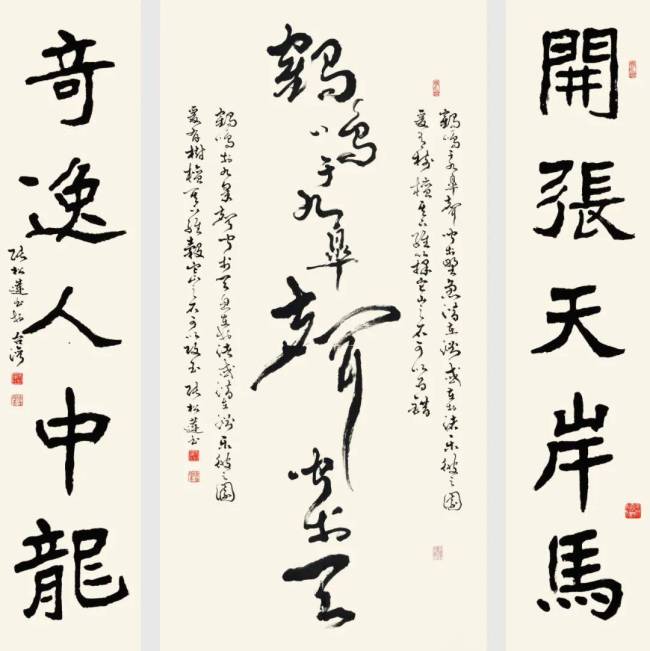 開張天岸馬
鶴鳴于九皐聲聞于野魚潛在淵或在于渚樂彼之園
爰有樹檀其下維蘀它山之石可以為錯
鶴鳴于九皐聲聞於天
鶴鳴于九皐聲聞於天魚在于渚或潛在淵樂彼之園
爰有樹檀其下維榖它山之石可以攻玉 松蓮書
奇逸人中龍
松蓮書於